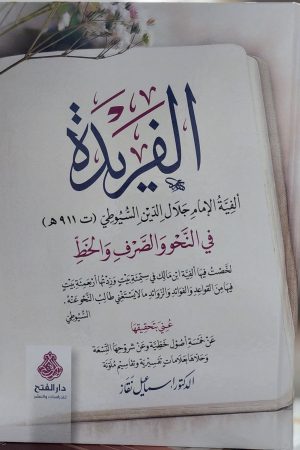 الفَرِيْدَة
ألفِيَّةُ الإِمَامِ جَلَالِ الدِّينِ السُّيُوطِي (ت ٩١١ هـ)
في النَّحْوِ وَالصَّرْفِ وَالخَطِّ
لَخَّصْتُ فِيهَا أَلْفِيَّةَ ابْنِ مَالِكٍ فِي سِتِّمِئَةِ بَيْتٍ وَزِدْتُهَا أَرْبَعَمِئَةِ بَيْتٍ
فِيهَا مِنَ القَوَاعِدِ وَالفَوَائِدِ وَالزَّوَائِدِ مَا لَا يَسْتَغْنِي طَالِبُ النَّحْوِ عَنْهُ.
السُّيُوطِيّ
عُنِيَ بِتَحْقِيقِهَا
عَنْ خَمْسَةِ أُصُولٍ خَطِّيَّةٍ وَعَنْ شُرُوحِهَا التِّسْعَةِ
وَحَلَّاهَا بِعَلَامَاتٍ تَفْسِيرِيَّةٍ وَتَقَاسِيمَ مُلَوَّنَةٍ
الدكتور إسماعيل نقاز
دار الفتح
للدراسات والنشر